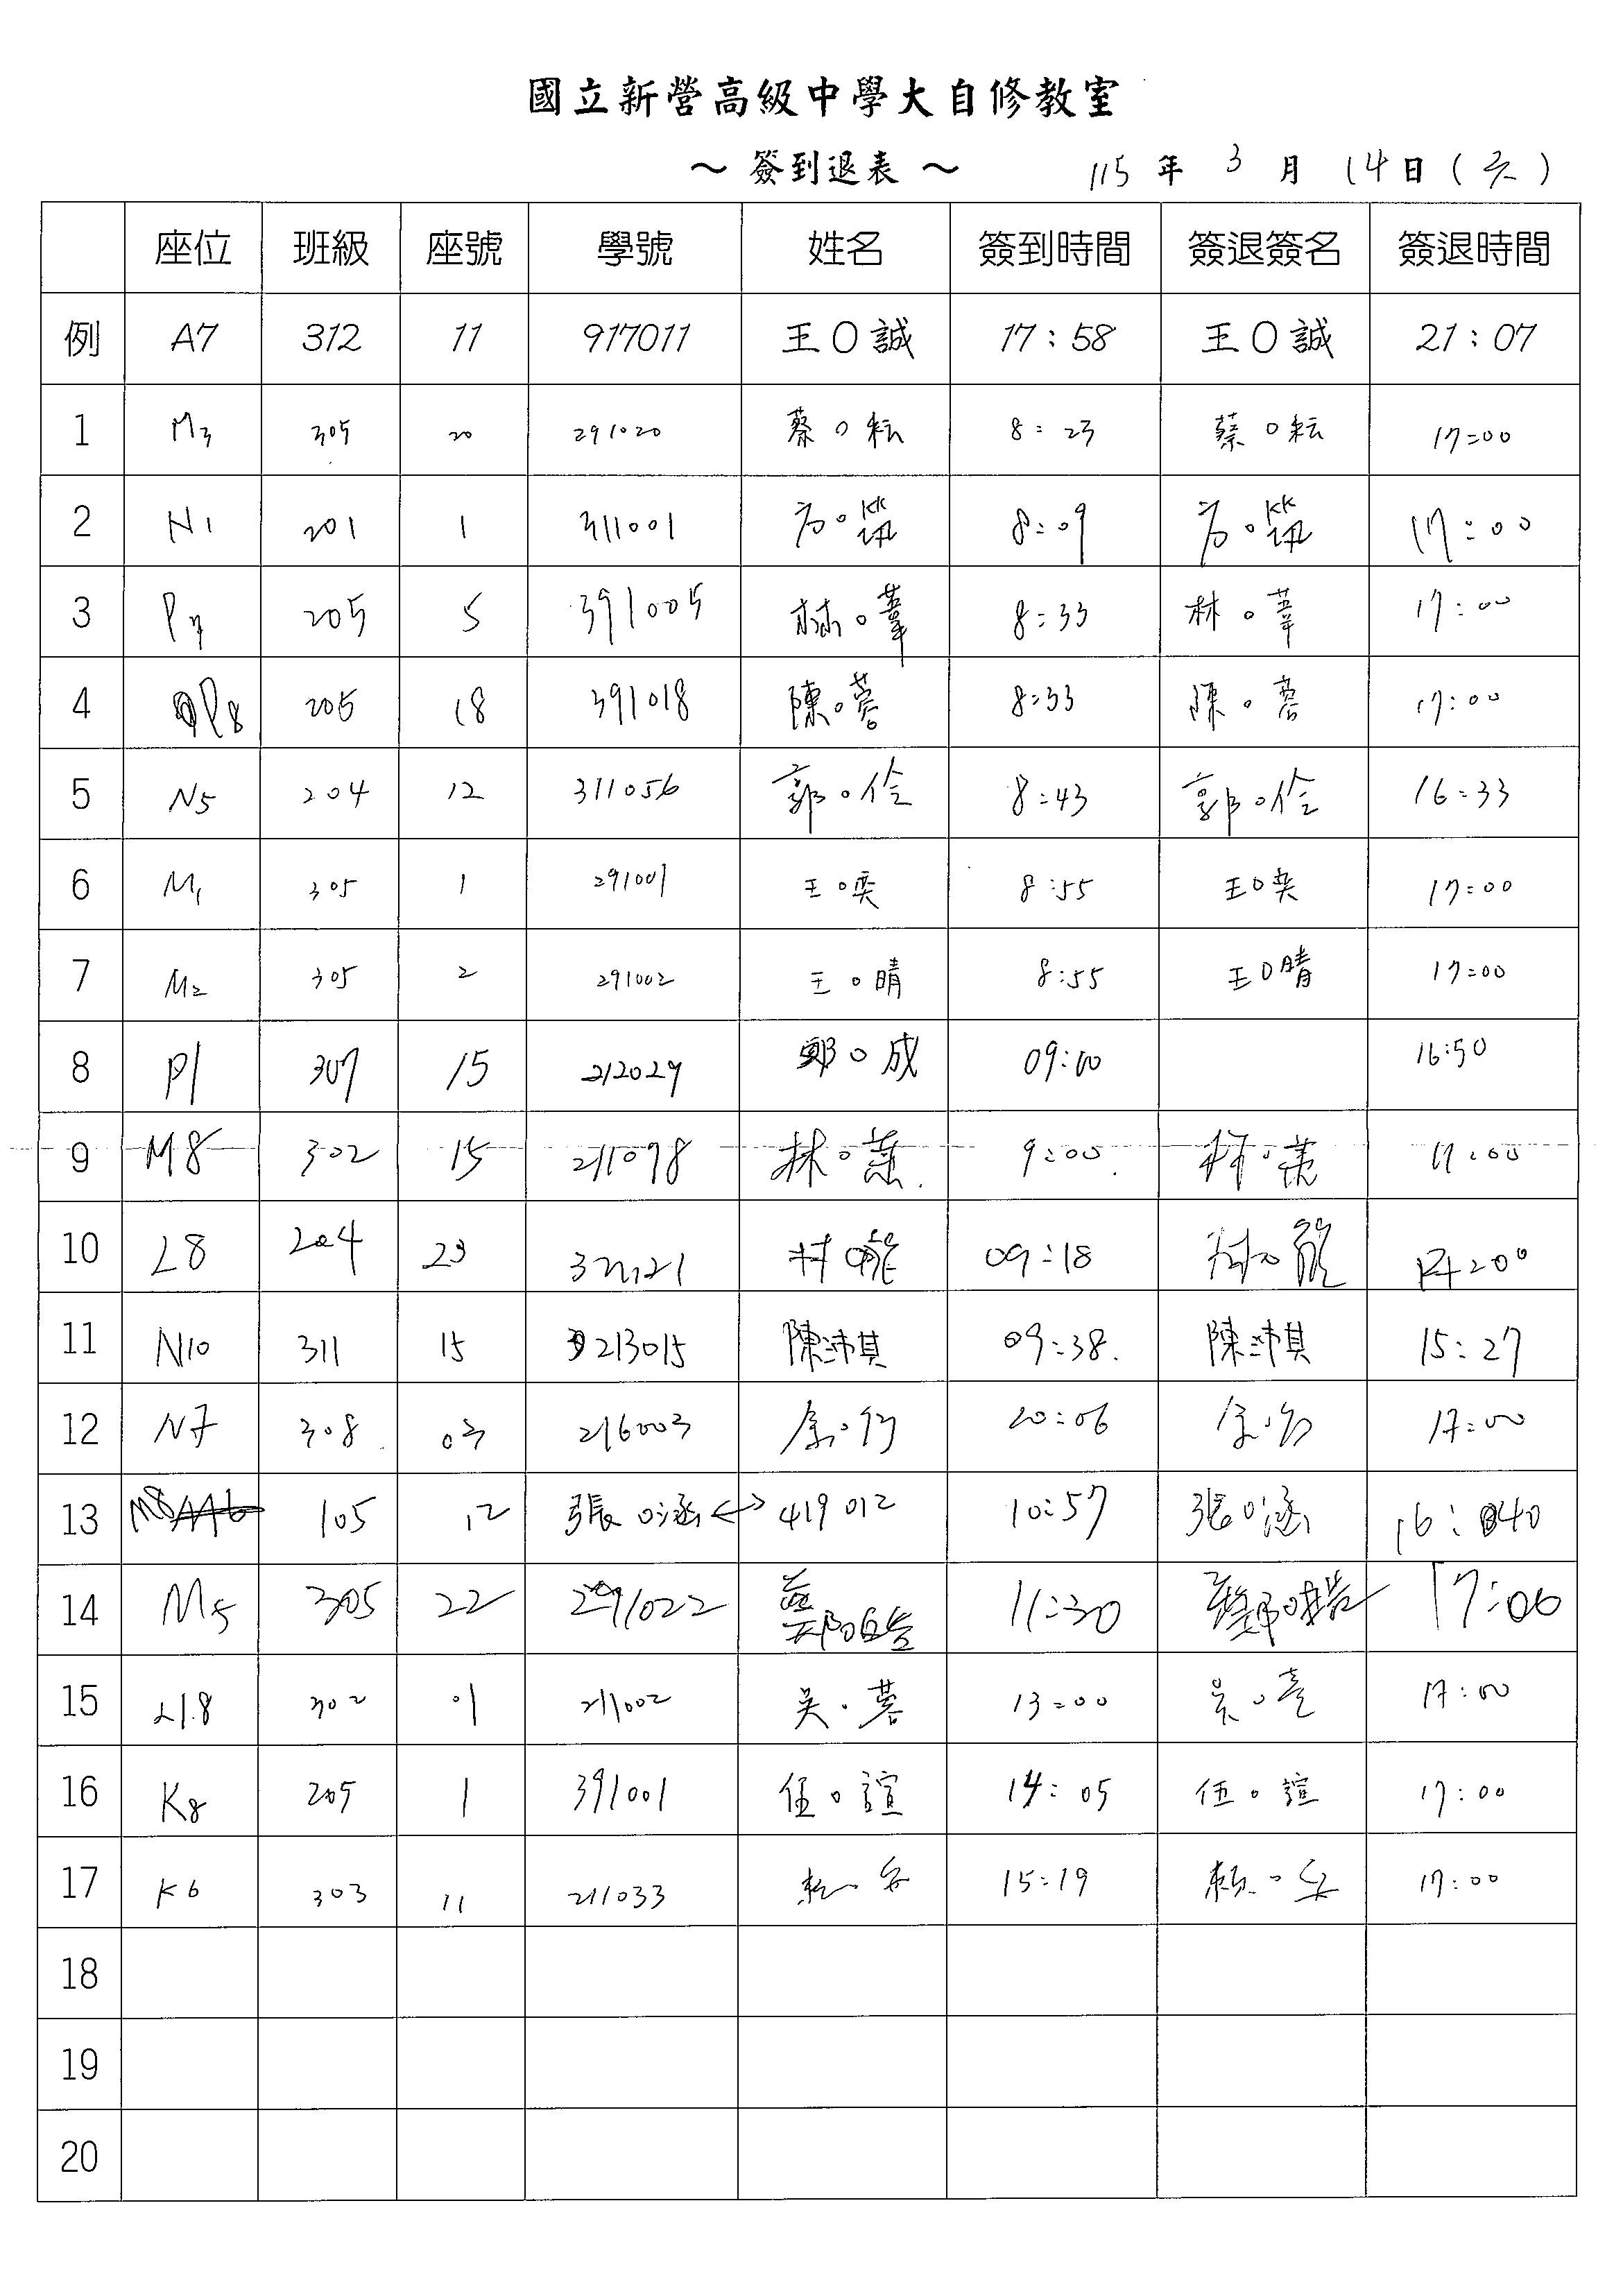 國立新營高級中學大自修教室
～ 簽到退表 ～ 115 年 3 月 14 日 ( )
座位 班級 座號 學號 姓名 簽到時間 簽退簽名 簽退時間
例 A7 312 11 917011 王O誠 17:58 王O誠 21:07
1 M3 305 20 291020 蔡O耘 8:23 蔡O耘 17:00
2 N1 201 1 311001 方O 8:09 方O 17:00
3 P7 205 5 391005 林O葦 8:33 林O葦 17:00
4 P8 205 18 391018 陳O蓉 8:33 陳O蓉 17:00
5 N5 204 12 311056 郭O伶 8:43 郭O伶 16:33
6 M1 305 1 291001 王O奕 8:55 王O奕 17:00
7 M2 305 2 291002 王O晴 8:55 王O晴 17:00
8 P1 307 15 212029 鄭O成 09:00 16:50
9 M8 302 15 211098 林O 9:00 林O 17:00
10 L8 204 23 09:18
11 N10 311 15 213015 陳沛其 09:38 陳沛其 15:27
12 N7 308 03 216003 :06 17:00
13 M8 105 12 張O涵 <-> 419012 10:57 張O涵 16:40
14 M5 305 22 291022 11:30 17:00
15 302 01 211002 吳O蓉 13:00 吳O 17:00
16 K8 205 1 391001 伍O諠 14:05 伍O諠 17:00
17 K6 303 11 211033 15:19 賴O 17:00
18
19
20